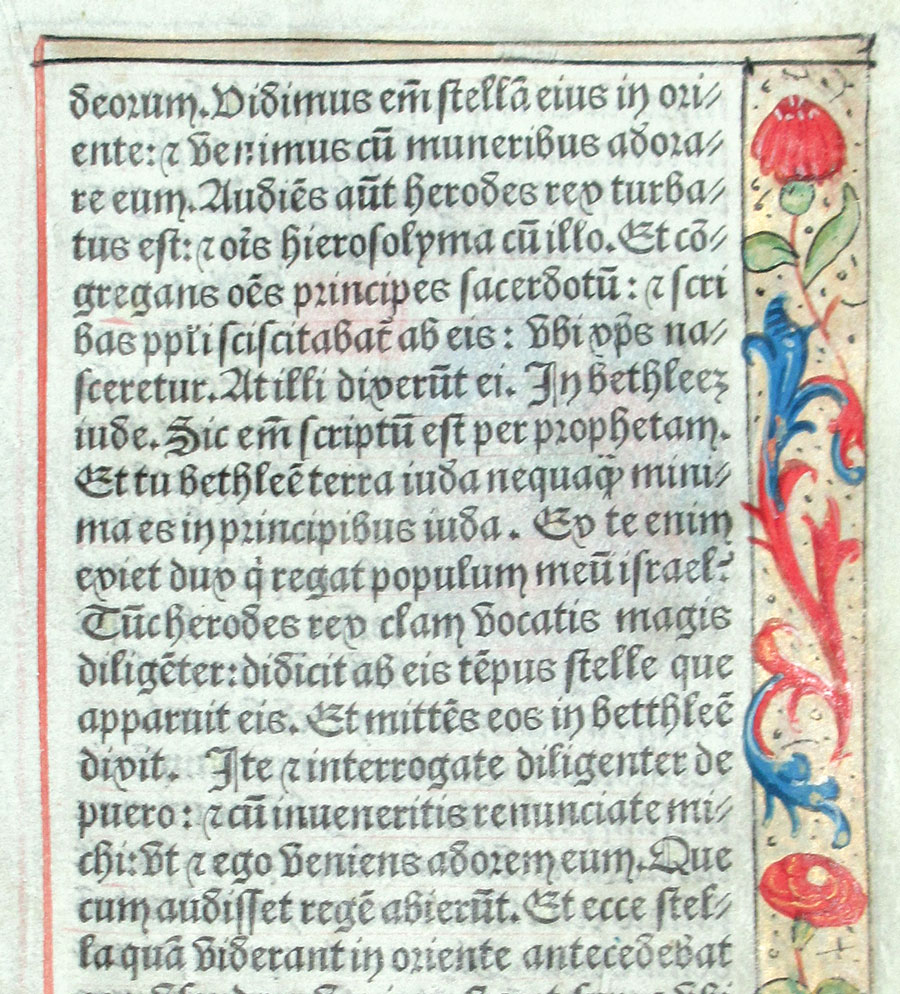 deorum. Vidimus em̃ stellã eius in ori⸗
ente: ⁊ venimus cũ muneribus adora⸗
re eum. Audiẽs aũt herodes rex turba⸗
tus est: ⁊ oĩs hierosolyma cũ illo. Et cõ⸗
gregans oẽs principes sacerdotũ: ⁊ scri
bas ppl̃i sciscitabat̃ ab eis: vbi xp̃s na⸗
sceretur. At illi dixerũt ei. In bethleeꝫ
iude. Sic em̃ scriptũ est per prophetam.
Et tu bethleẽ terra iuda nequaq̃ mini⸗
ma es in principibus iuda. Ex te enim
exiet dux q̇ regat populum meũ israel?
Tũc herodes rex clam vocatis magis
diligẽter: didicit ab eis tẽpus stelle que
apparuit eis. Et mittẽs eos in betthleẽ
dixit. Ite ⁊ interrogate diligenter de
puero: ⁊ cũ inueneritis renunciate mi⸗
chi: vt ⁊ ego veniens adorem eum. Que
cum audisset regẽ abierũt. Et ecce stel⸗
la quã viderant in oriente antecedebat